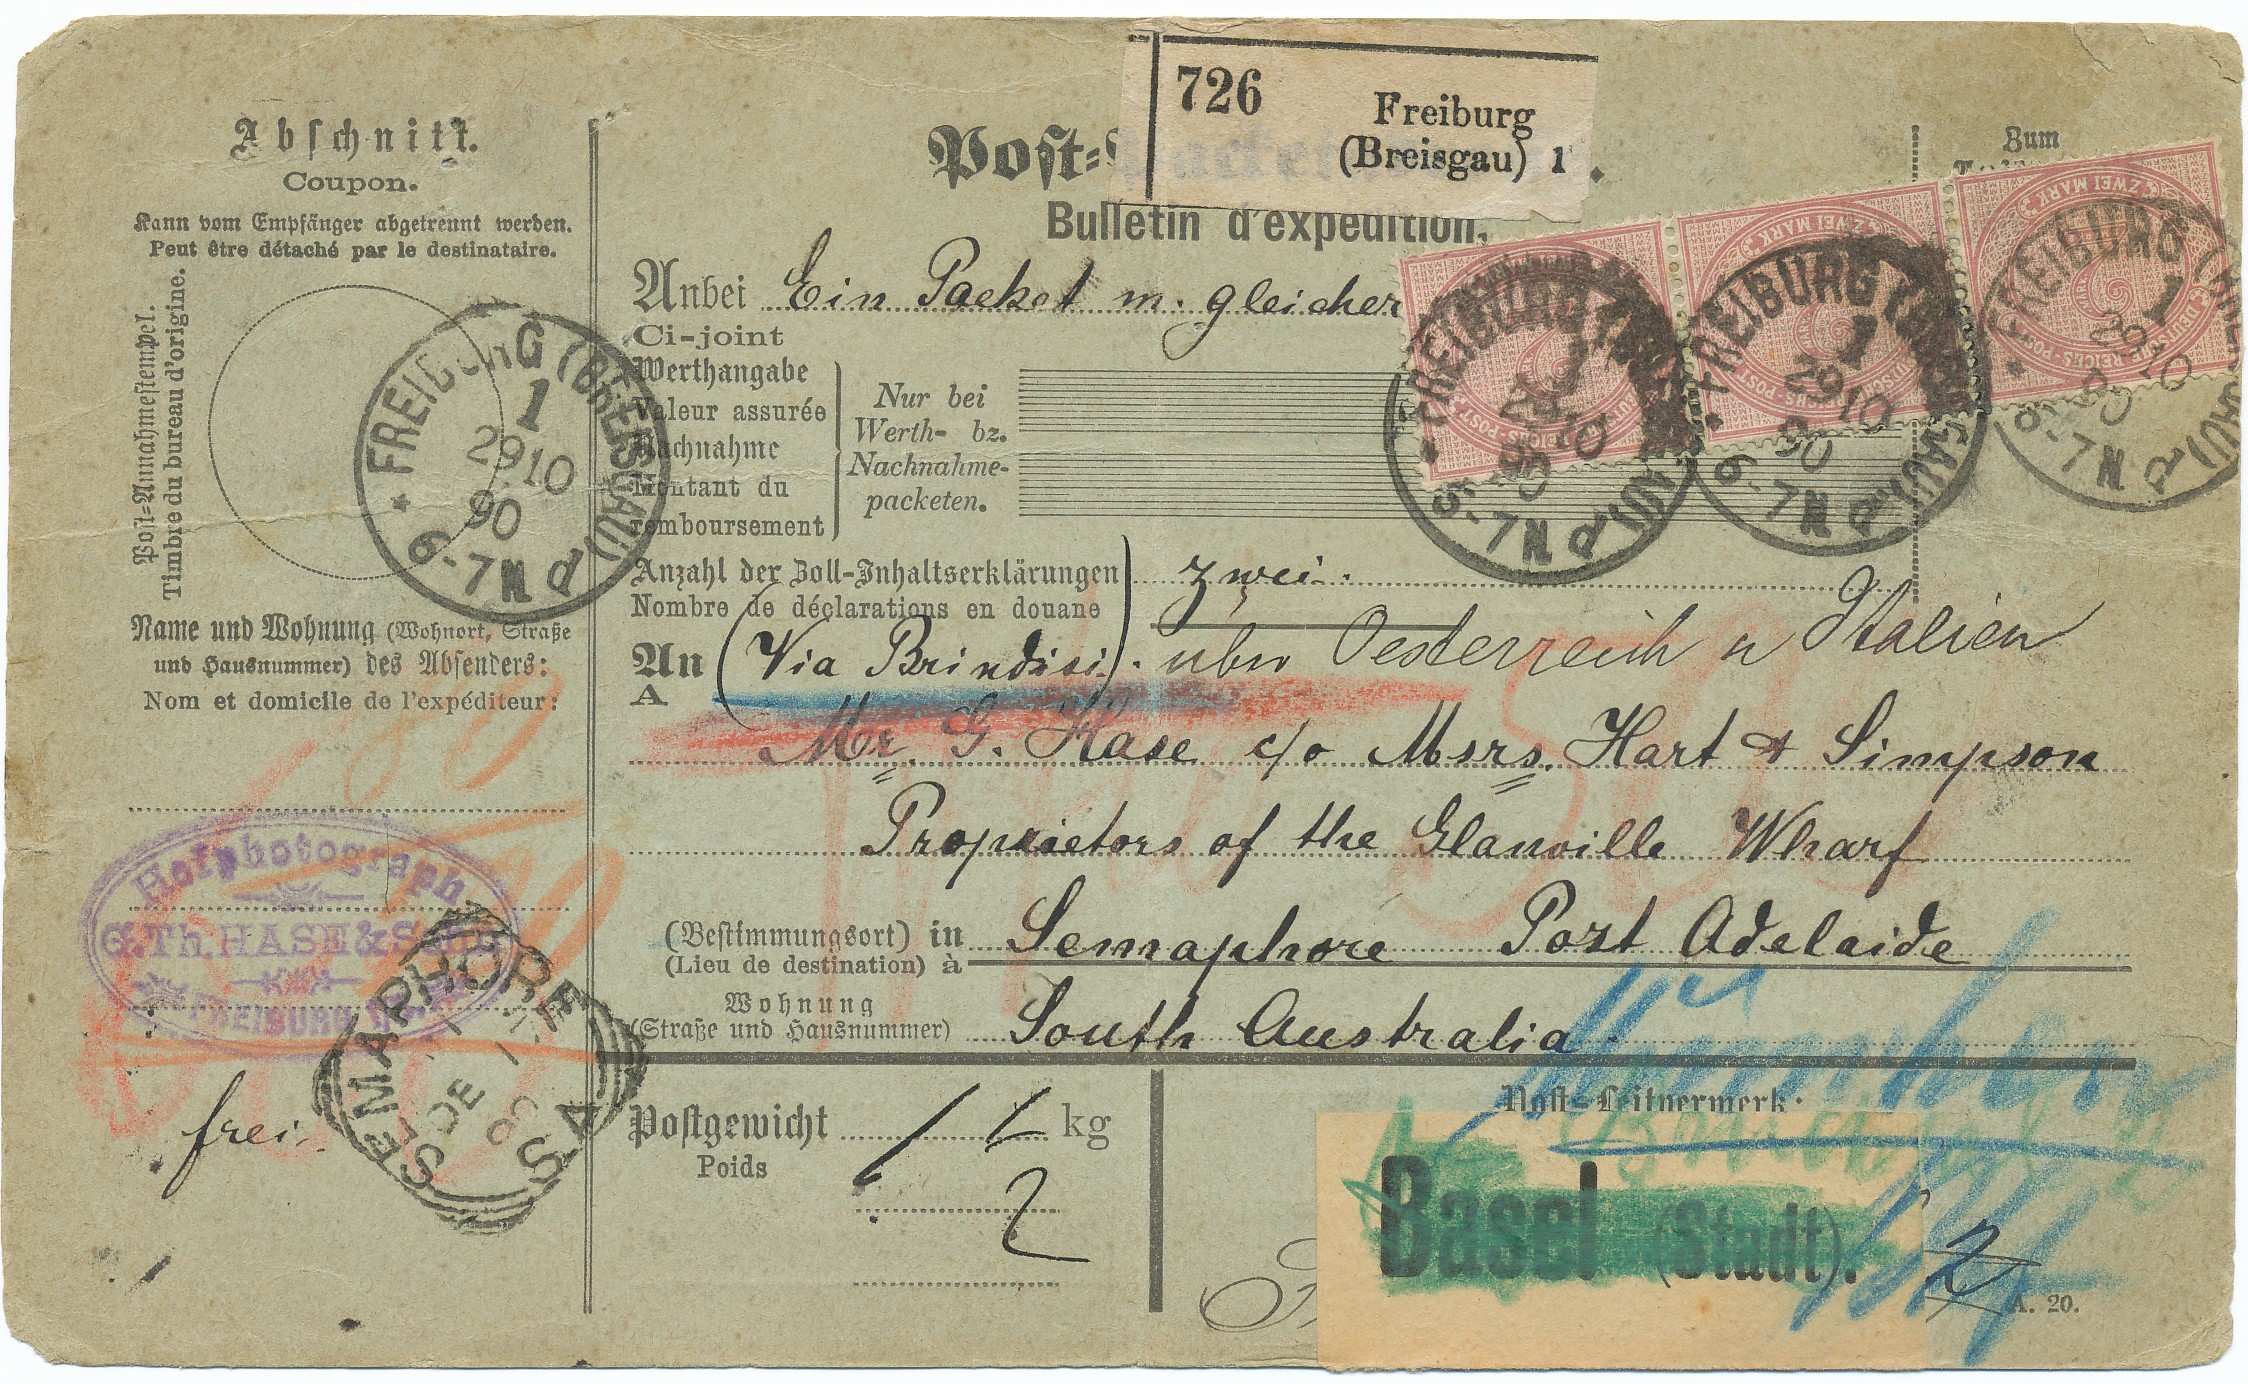 Abschnitt.
Coupon.
Kann vom Empfänger abgetrennt werden.
Peut être détaché par le destinataire.
Post-Annahmestempel.
Timbre du bureau d'origine.
FREIBURG (BREISGAU)
1
29 10
90
6-7N
Name und Wohnung (Wohnort, Straße
und Hausnummer) des Absenders:
Nom et domicile de l'expéditeur:
Hofphotograph
G. Th. HASE & Sohn
FREIBURG
frei.
SEMAPHORE
DE 1
90
S A
726
Freiburg
(Breisgau) 1
Post-
Bulletin d'expédition.
Zum
ZWEI MARK
DEUTSCHE REICHS-POST
ZWEI MARK
DEUTSCHE REICHS-POST
ZWEI MARK
DEUTSCHE REICHS-POST
FREIBURG (BREISGAU)
1
29 10
90
6-7N
FREIBURG (BREISGAU)
1
29 10
90
6-7N
FREIBURG (BREISGAU)
1
29 10
90
6-7N
Anbei Ein Packet m. gleicher
Ci-joint
Werthangabe
Valeur assurée
Nachnahme
Montant du
remboursement
Nur bei
Werth- bz.
Nachnahme-
packeten.
Anzahl der Zoll-Inhaltserklärungen
Nombre de déclarations en douane
zwei.
An (Via Brindisi). über Oesterreich u Italien
A
Mr. G. Hase c/o Msrs. Hart & Simpson
Proprietors of the Glanville Wharf
(Bestimmungsort) in Semaphore Port Adelaide
(Lieu de destination) à
Wohnung
(Straße und Hausnummer) South Australia.
Postgewicht 1 1/2 kg
Poids
Post-Leitvermerk.
Basel (Stadt).
2
A. 20.